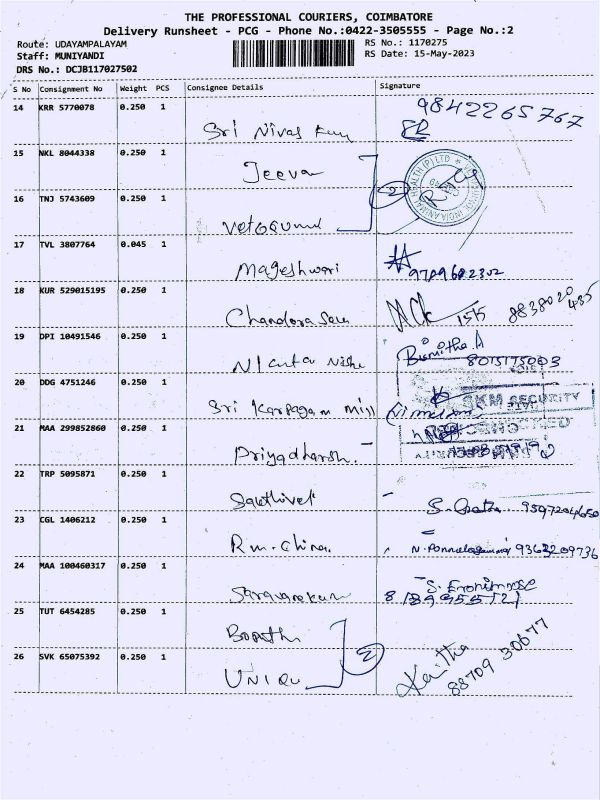 THE PROFESSIONAL COURIERS, COIMBATORE
Delivery Runsheet - PCG - Phone No.:0422-3505555 - Page No.:2
Route: UDAYAMPALAYAM
RS No.: 1170275
Staff: MUNIYANDI
RS Date: 15-May-2023
DRS No.: DCJB117027502
S No Consignment No Weight PCS Consignee Details Signature
14 KRR 5770078 0.250 1 9842265767
Sri Nivas
15 NKL 8044338 0.250 1
Jeeva
16 TNJ 5743609 0.250 1 2
17 TVL 3807764 0.045 1
Mageshwari 9789682302
18 KUR 529015195 0.250 1
1515 8838020485
19 DPI 10491546 0.250 1
Bismitha.A
8015175003
20 DDG 4751246 0.250 1
Sri Karpagam Mill
SKM SECURITY
21 MAA 299852860 0.250 1
Priyadharsh.
22 TRP 5095871 0.250 1
Sakthivel
23 CGL 1406212 0.250 1
R.m. China 9363209736
24 MAA 100460317 0.250 1
25 TUT 6454285 0.250 1
26 SVK 65075392 0.250 1 2
88709 30677